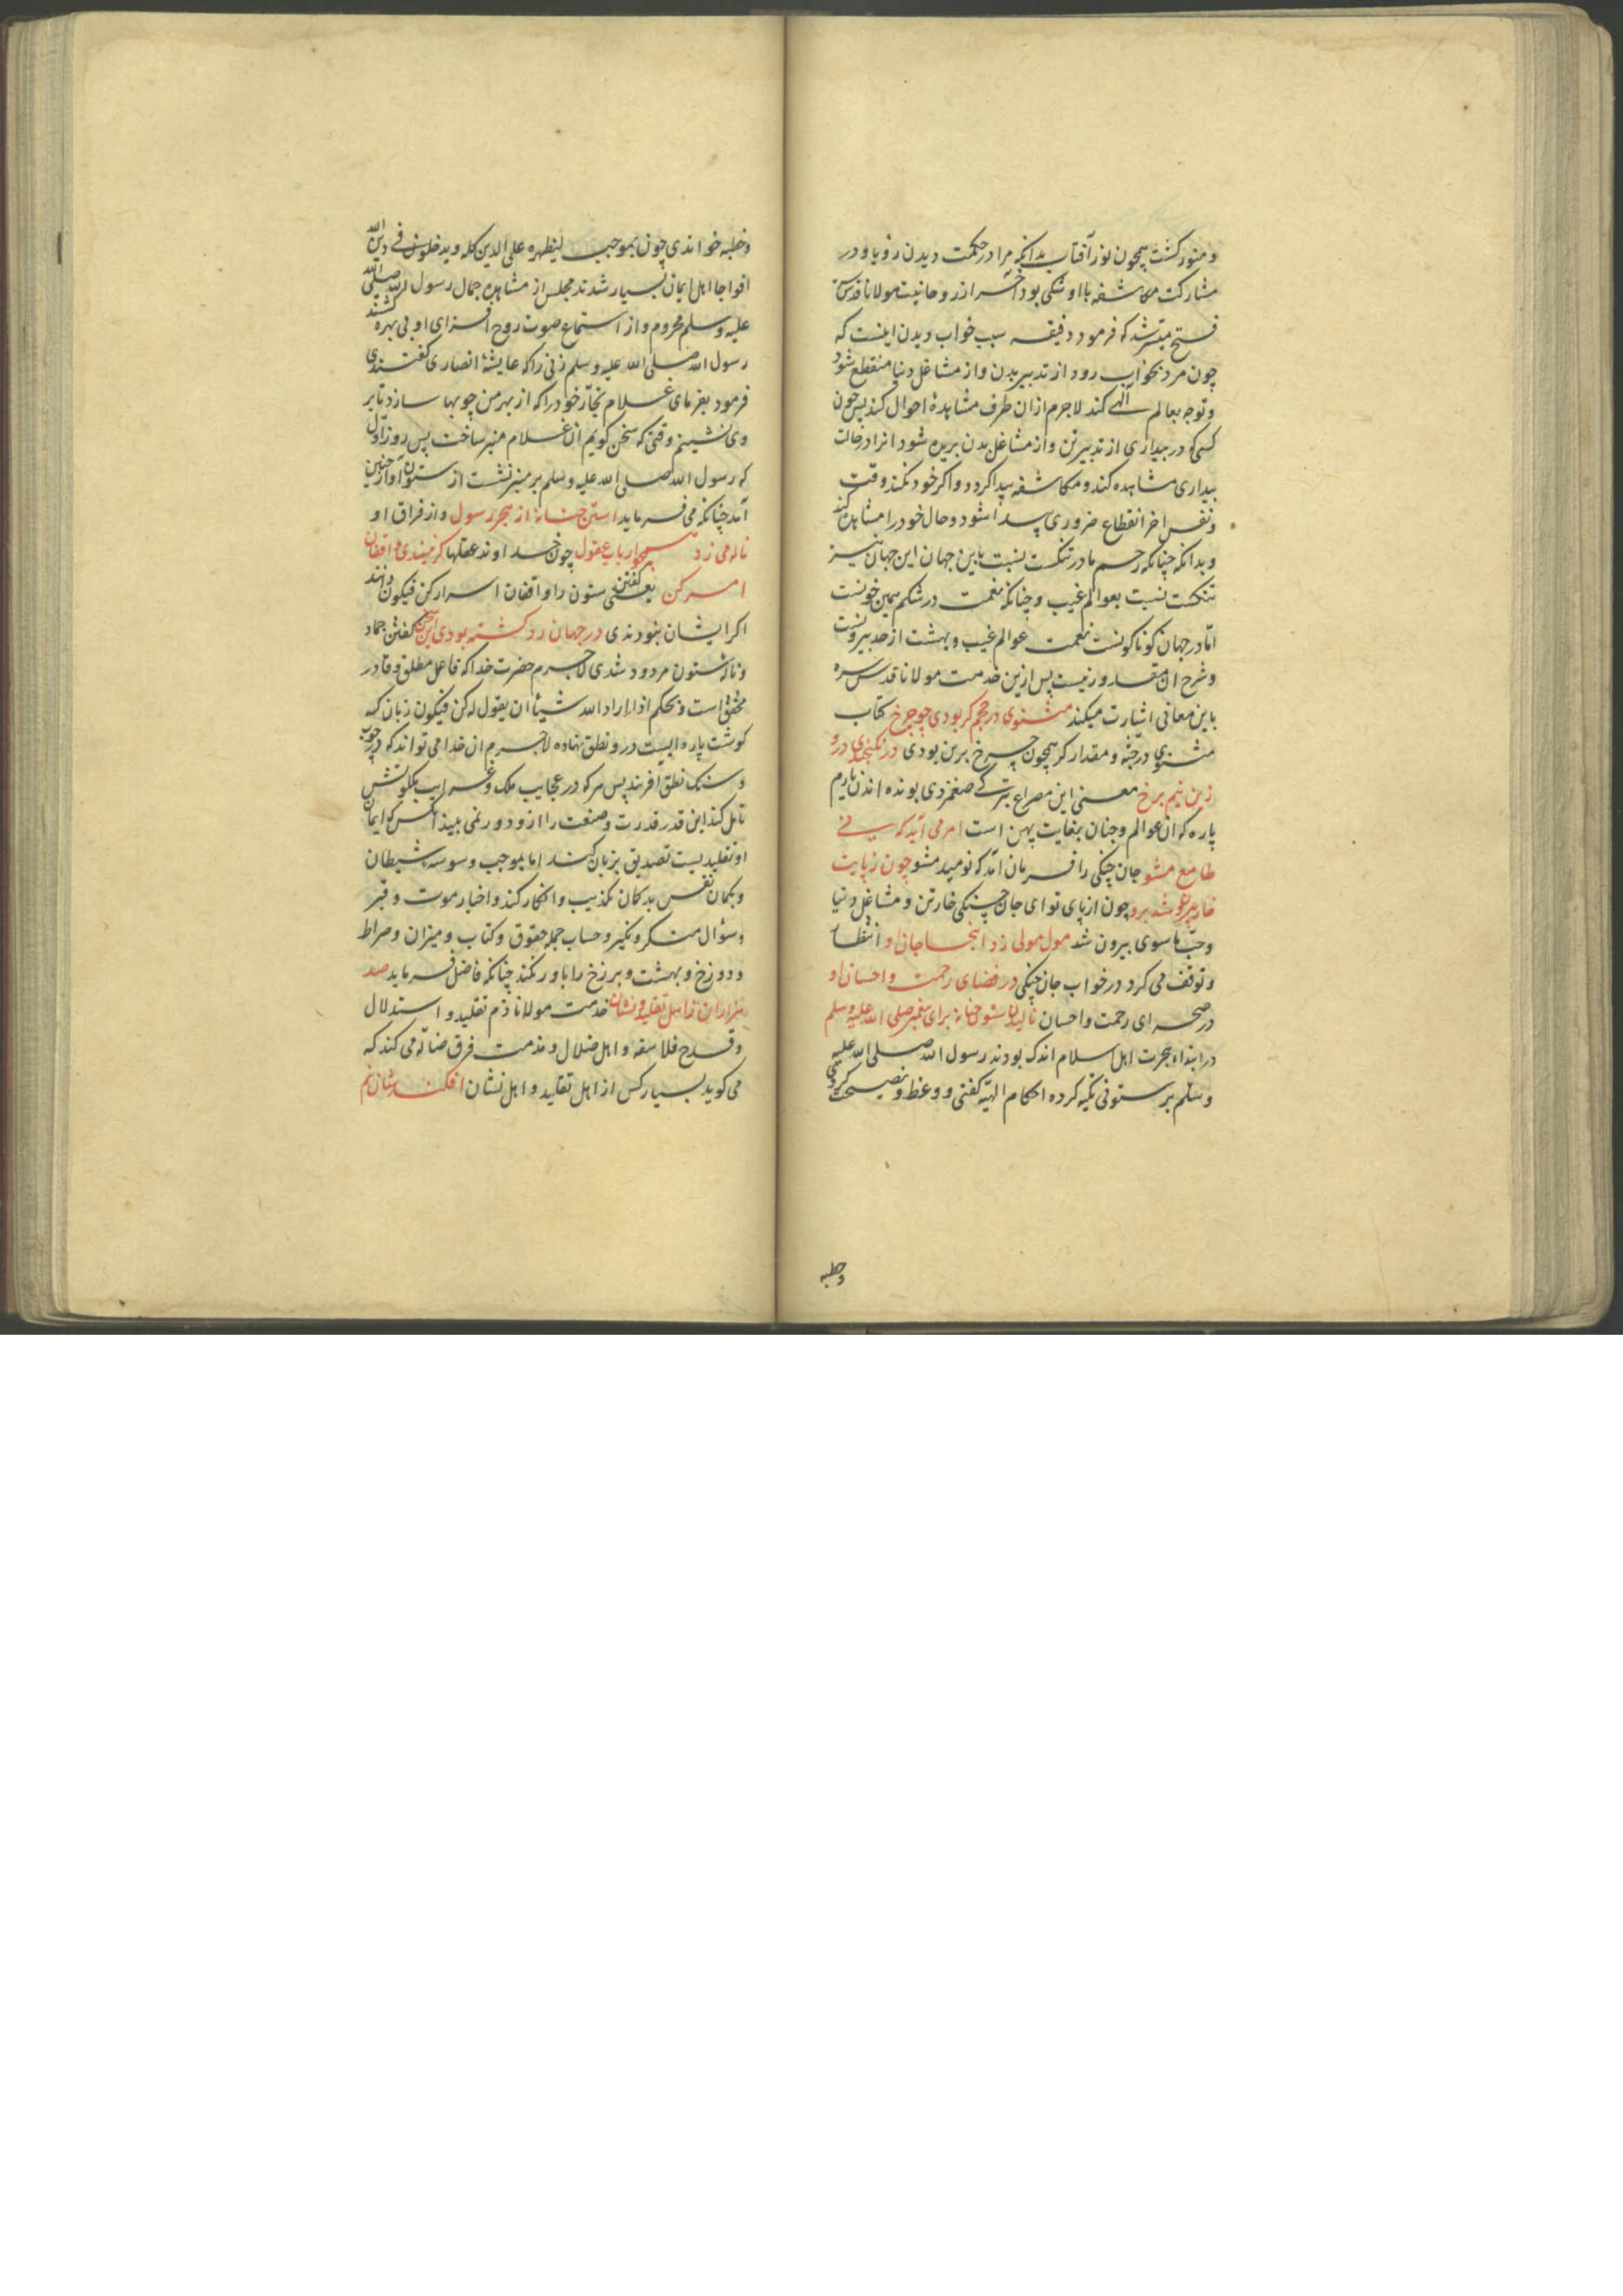 و منور کشت همچون نور آفتاب بدانکه مرا در حکمت دیدن رؤیا و در
مشارکت مکاشفه با او شکی بود آخر از روحانیت مولانا قدس
فتح میسر شد که فرمود دقیقه سبب خواب دیدن اینست که
چون مرد بخواب رود از تدبیر بدن و از مشاغل دنیا منقطع شود
و توجه بعالم آلهی کند لاجرم ازان طرف مشاهدهٔ احوال کند پس چون
کسی که در بیداری از تدبیر تن و از مشاغل بدن بریده شود انرا در حالت
بیداری مشاهده کند و مکاشفه پیدا کردد و اکر خود نکند وقت
و نفس اخر انقطاع ضروری پیدا شود و حال خود را مشاهده کند
و بدانکه چنانکه رحم مادر تنکست نسبت باین جهان این جهان نیز
تنکست نسبت بعوالم غیب و چنانکه نعمت در شکم همین خونست
امّا در جهان کوناکونست نعمت عوالم غیب و بهشت از حد بیرونست
و شرح ان مقدور نیست پس ازین خدمت مولانا قدس سره
باین معانی اشارت میکند مثنوی در حجم کر بودی چو چرخ کتاب
مثنوی در جثه و مقدار کر همچون چرخ برین بودی در نکنجیدی درو
زین نیم برخ معنی این مصراع ترکی صغمزدی بونده اندن یارم
پاره که ان عوالم و جنان بغایت پهن است امر می آید که نی
طامع مشو جان چنکی را فرمان آمد که نومید مشو چون ز پایت
خار بیرون شد برو چون از پای تو ای جان چنکی خار تن و مشاغل دنیا
و حبّ ماسوی بیرون شد مول مولی زد آنجا جان او انتظار
و توقف می کرد در خواب جان چنکی در فضای رحمت و احسان او
در صحرای رحمت و احسان نالیدن ستون حنانه برای پیغمبر صلی الله علیه وسلم
در ابتداء هجرت اهل اسلام اندک بودند رسول الله صلی الله علیه
و سلّم بر ستونی تکیه کرده احکام الهیّه کفتی و وعظ و نصیحت کردی
وخطبه
و خطبه خواندی چون بموجب لیظهره علی الدین کله و یدخلون فی دین الله
افواجا اهل ایمان بسیار شدند مجلس از مشاهده جمال رسول الله صلی الله
علیه و سلم محروم و از استماع صوت روح افزای او بی بهره کشتند
رسول الله صلی الله علیه وسلم زنی را که عایشهٔ انصاری کفتندی
فرمود بفرمای غلام نجّار خود را که از بهر من چوبها سازد تا بر
وی نشینم وقتی که سخن کویم ان غلام منبر ساخت پس روز اول
که رسول الله صلی الله علیه وسلم بر منبر نشست از ستون آواز حنین
آمد چنانکه می فرماید استن حنانه از هجر رسول و از فراق او
ناله می زد همچو ارباب عقول چون خداوند عقلها کر نیندی واقفان
امر کن یعنی کفتن ستون را واقفان اسرار کن فیکون دانند
اکر ایشان نبودندی در جهان رد کشته بودی این سخن کفتن جماد
و نالهٔ ستون مردود شدی لاجرم حضرت خدا که فاعل مطلق و قادر
محقق است و بحکم اذا اراد الله شیئا ان یقول له کن فیکون زبان که
کوشت پاره ایست درو نطق نهاده لاجرم ان خدا می تواند که در چوب
و سنک نطق آفریند پس هرکه در عجایب ملک و غرایب ملکوتش
تامل کند این قدر قدرت و صنعت را ازو دور نمی بیند آنکس که ایمان
او تقلیدیست تصدیق بزبان کند اما بموجب وسوسهٔ شیطان
و بکمان نفس بدکمان تکذیب و انکار کند و اخبار موت و قبر
و سؤال منکر و نکیر و حساب جمله حقوق و کتاب و میزان و صراط
و دوزخ و بهشت و برزخ را باور نکند چنانکه فاضل فرماید صد
هزاران ز اهل تقلید و نشان خدمت مولانا ذم تقلید و استدلال
و قدح فلاسفه و اهل ضلال و مذمت فرق ضالّه می کند که
می کوید بسیار کس از اهل تقلید و اهل نشان افکندشان نیم